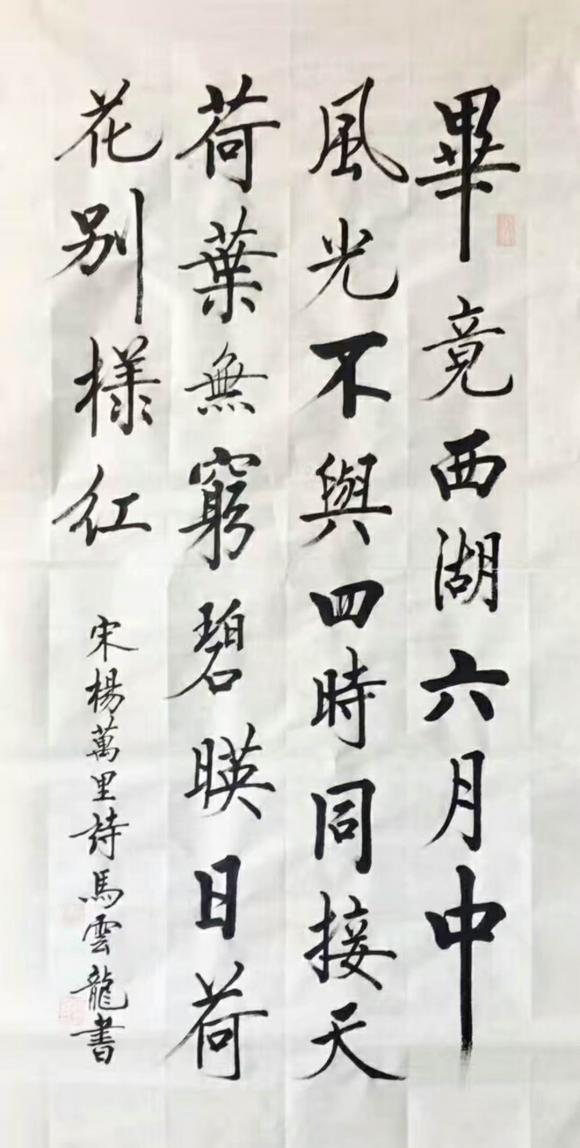 畢竟西湖六月中
風光不與四時同接天
荷葉無窮碧暎日荷
花别樣紅
宋楊萬里詩馬雲龍書